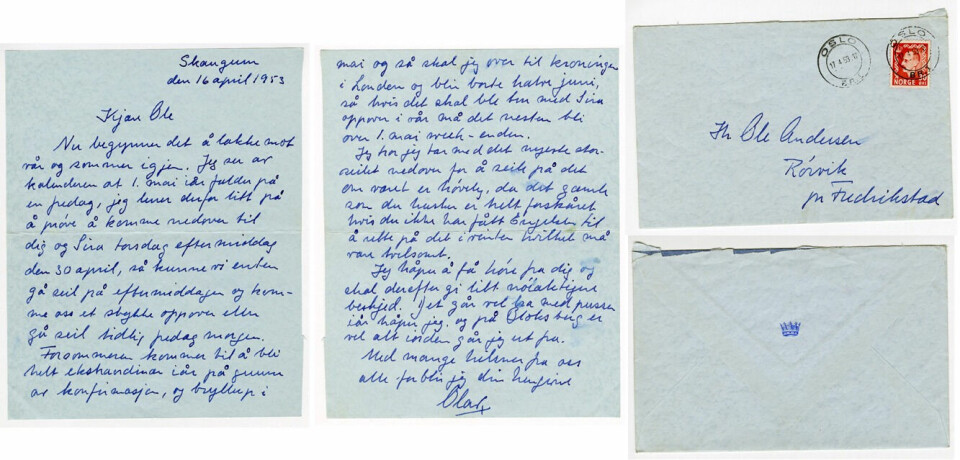 Skaugum
den 16 april 1953
Kjære Ole
Nu begynner det å lakke mot
vår og sommer igjen. Jeg ser av
kalenderen at 1. mai iår falder på
en fredag, jeg lurer derfor litt på
å prøve å komme nedover til
dig og Sira torsdag eftermiddag
den 30 april, så kunne vi enten
gå seil på eftermiddagen og kom-
me oss et stykke oppover eller
gå seil tidlig fredag morgen.
Forsommeren kommer til å bli
helt ekstraordinær iår på grunn
av konfirmasjon, og bryllup i
mai og så skal jeg over til kroningen
i London og blir borte halve juni,
så hvis det skal ble tur med Sira
oppover i vår må det nesten bli
over 1. mai week-enden.
Jeg har jeg tar med det nyeste stor-
seilet nedover for å seile på det
om været er høvelig, da det gamle
som du husker er helt forskåret
hvis du ikke har fått Engelsen til
å rette på det i vinter hvilket må
være tvilsomt.
Jeg håper å få høre fra dig og
skal derefter gi litt nøiaktigere
beskjed. Det går vel bra med pussen
iår håper jeg, og på Bloksberg er
vel alt iorden går jeg ut fra.
Med mange hilsner fra oss
alle forblir jeg din hengivne
Olav
OSLO
17.4.53
NORGE
OSLO
Hr Ole Andersen
Rørvik
pr Fredrikstad